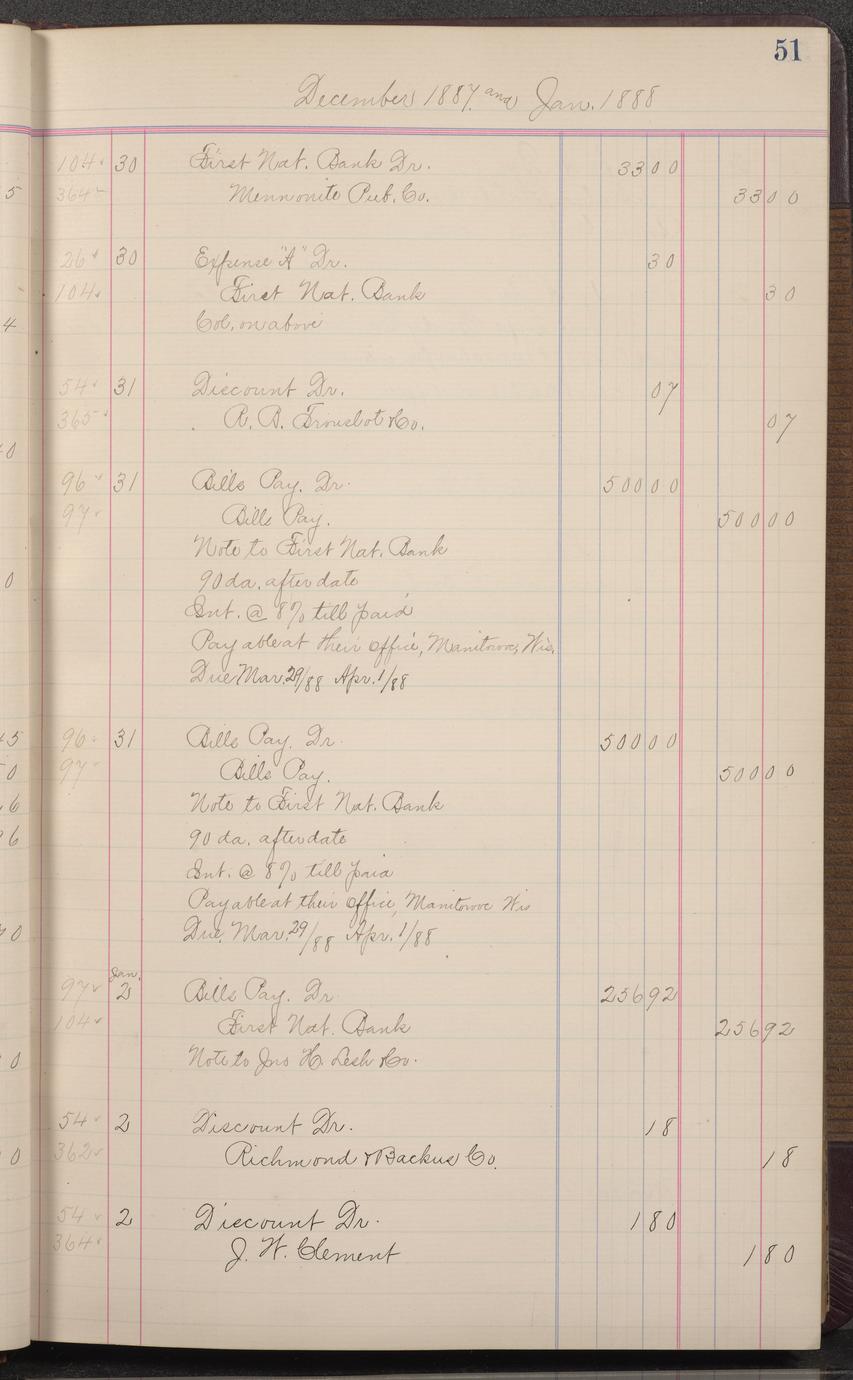 51
December 1887. and Jan. 1888
104 30 First Nat. Bank Dr. 33 00
364 Mennonite Pub. Co. 33 00
26 30 Expense "A" Dr. 30
104 First Nat. Bank 30
Col. on above
54 31 Discount Dr. 07
365 R. B. & Co. 07
96 31 Bills Pay. Dr. 500 00
97 Bills Pay. 500 00
Note to First Nat. Bank
90 da. after date
Int. @ 8% till paid
Payable at their office, Manitowoc, Wis.
Due Mar. 29/88 Apr. 1/88
96 31 Bills Pay. Dr. 500 00
97 Bills Pay. 500 00
Note to First Nat. Bank
90 da. after date
Int. @ 8% till paid
Payable at their office, Manitowoc Wis
Due Mar. 29/88 Apr. 1/88
Jan.
97 2 Bills Pay. Dr 256 92
104 First Nat. Bank 256 92
Note to Jno H. Lesh & Co.
54 2 Discount Dr. 18
362 Richmond & Backus Co. 18
54 2 Discount Dr. 1 80
364 J. W. Clement 1 80